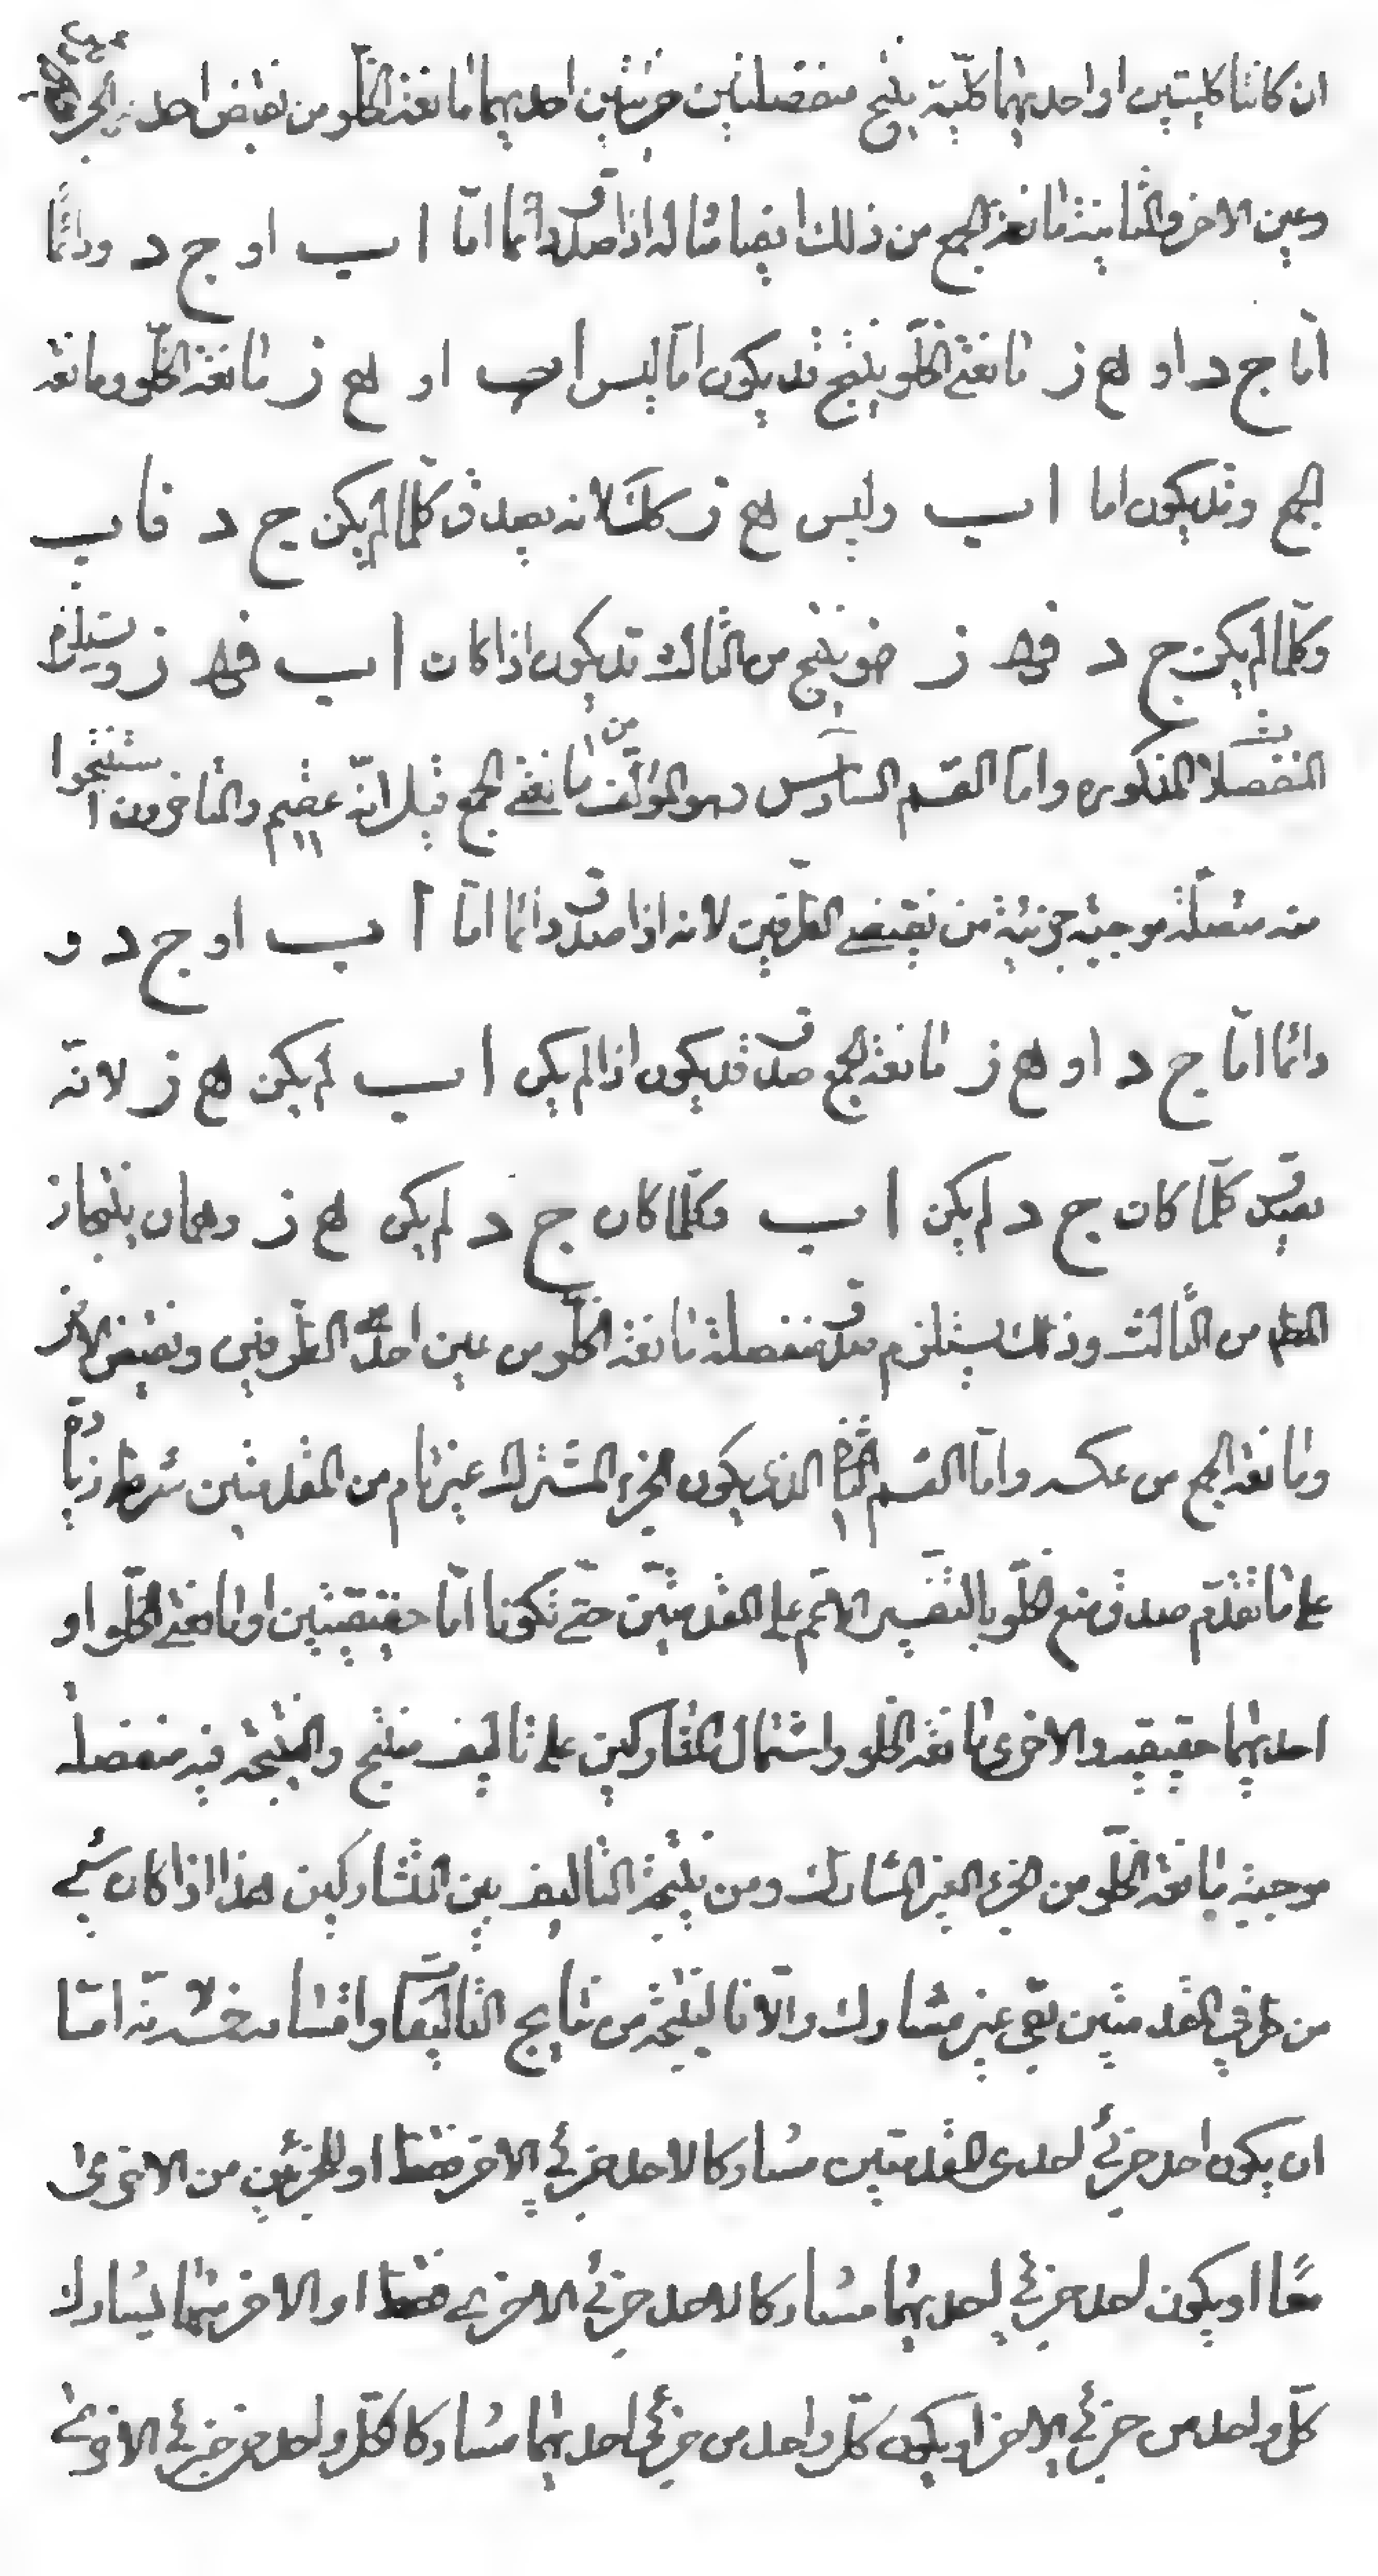 ان كانتا كليتين او احديهما كلية ينتج منفصلتين جزئيتين احديهما مانعة الخلو من نقيض احد
وعين الاخر والثانية مانعة الجمع من ذلك ايضا مثاله اذا صدق دائما امّا ا ب او ج د ودائما
امّا ج د او ه ز مانعتى الخلو ينتج قد يكون امّا ليس ا ب او ه ز مانعة الخلو ومانعة
الجمع وقد يكون اما ا ب وليس ه ز كك لانه يصدق كلّما لم يكن ج د فا ب
وكلّما لم يكن ج د فه ز فهو ينتج من الثالث قد يكون اذا كان ا ب فه ز ويستلزم
المنفصلات المذكوره وامّا القسم السادس وهو المؤلّف من مانعتى الجمع قيل انّه عقيم والمتاخرون استنتجوا
منه متصلة موجبة جزئية من نقيضى الطرفين لانه اذا صدق دائما امّا ا ب او ج د و
دائما امّا ج د او ه ز مانعة الجمع صدق قد يكون اذا لم يكن ا ب لم يكن ه ز لانّه
يصدق كلّما كان ج د لم يكن ا ب وكلّما كان ج د لم يكن ه ز وهما ينتجان
المط من الثالث وذلك يستلزم صدق منفصلة مانعة الخلو من عين احد الطرفين ونقيض الاخر
ومانعة الجمع من عكسه وامّا القسم الثانى الذى يكون الجزء المشترك غير تام من المقدمتين شرطه زيادة
على ما تقدّم صدق منع الخلو بالتفسير الاعم على المقدمتين حتّى تكونا امّا حقيقيتين او مانعتى الخلو او
احديهما حقيقيه والاخرى مانعة الخلو واشتمال المتشاركين على تاليف منتج والنتيجة فيه منفصلة
موجبة مانعة الخلو من الجزء الغير المشارك ومن نتيجة التاليف بين المتشاركين هذا اذا كان شئ
من طرفى المقدمتين بقى غير مشارك والّا فالنتيجة من نتايج التاليفات واقسامه خمسة لانّه امّا
ان يكون احد جزئى احدى المقدمتين مشاركا لاحد جزئى الاخر فقط او للجزئين من الاخرى
معًا او يكون احد جزئى احديهما مشاركا لاحد جزئى الاخرى فقط او الاخر منهما يشارك
كل واحد من جزئى الاخر او يكون كلّ واحد من جزئى احديهما مشاركا لكلّ واحد من جزئى الاخرى